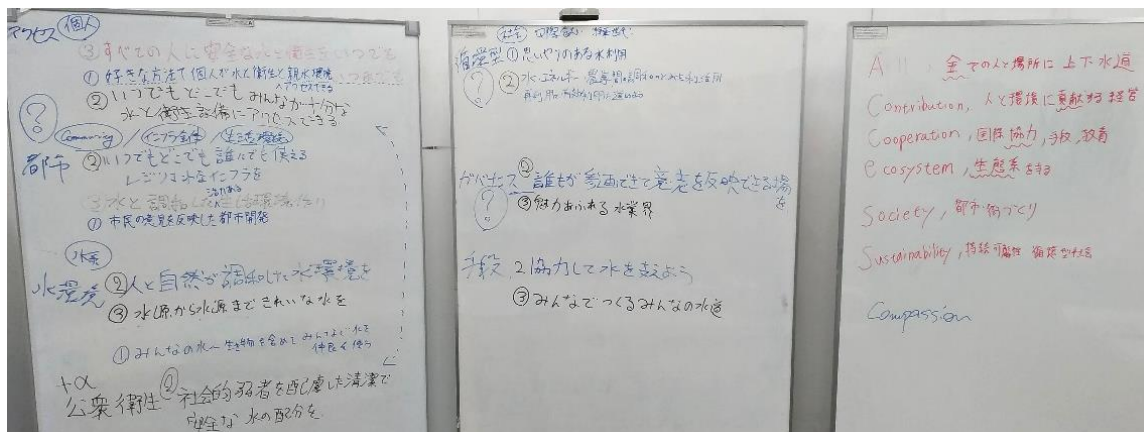 アクセス 個人
③すべての人に安全な水と衛生をいつでも
①好きな方法で個人が水と衛生と親水環境
アクセスできる
②いつでもどこでもみんなが十分な
水と衛生設備にアクセスできる
?
Community / インフラ全体 / 生活環境
都市 ②いつでもどこでも誰にでも使える
レジリエントな水インフラを
③水と調和した生活環境
①市民の意見を反映した都市開発
水環境 ②人と自然が調和した水環境を
③水源から水源まできれいな水を
①みんなの水〜生き物を含めてみんなで水を
仲良く使う
+α
公衆衛生 ②社会的弱者を配慮した清潔で
安全な水の配分を
社会
循環型 ①思いやりのある水利用
?
②水、エネルギー、
ガバナンス ②誰もが参画できて意志を反映できる場を
?
③魅力あふれる水業界
手段 2 協力して水を支えよう
③みんなでつくるみんなの水道
All, 全ての人と場所に上下水道
Contribution, 人と環境に貢献する経営
Cooperation, 国際協力, 手段, 教育
ecosystem, 生態系を守る
Society, 都市・街づくり
Sustainability, 持続可能性 循環型社会
Compassion